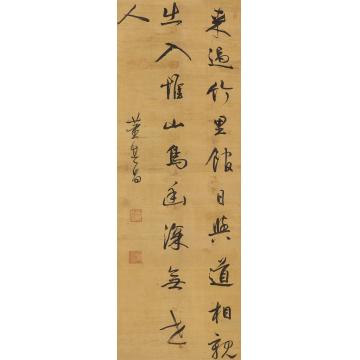 來過竹里館日與道相親
出入惟山鳥幽深無世
人
董其昌